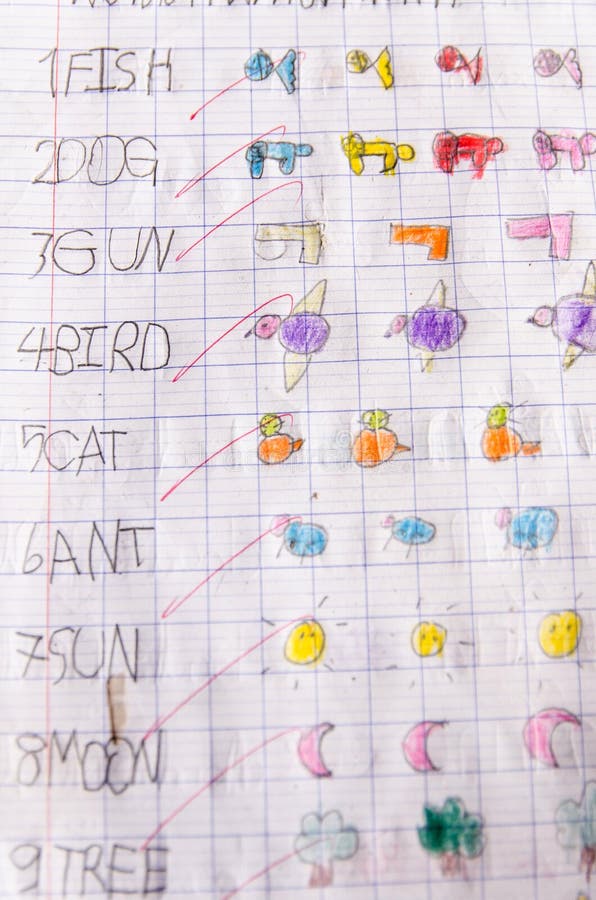 1 FISH
2 DOG
3 GUN
4 BIRD
5 CAT
6 ANT
7 SUN
8 MOON
9 TREE